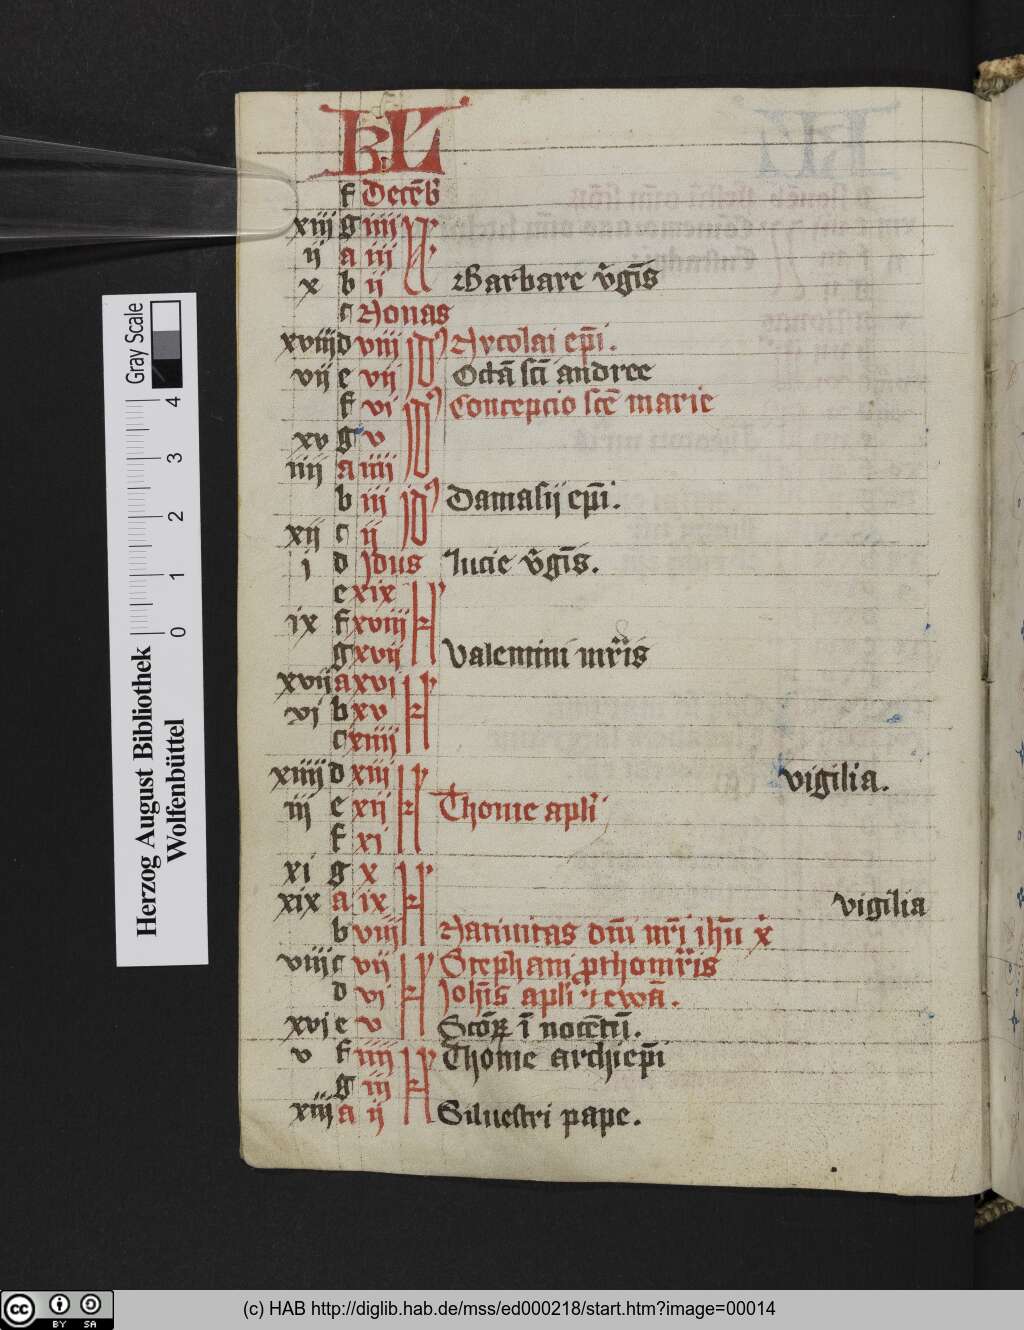 KL
f Decēb'
xiij g iiij N
ij a iij
x b ij Barbare v̄gīs
c Nonas
xviij d viij id9 Nycolai ep̄i.
vij e vij Octā sc̄i andree
f vi id9 Concepcio sc̄e marie
xv g v
iiij a iiij
b iij id9 Damasij ep̄i.
xij c ij
i d Jdus Lucie v̄gīs.
e xix kl
ix f xviij
g xvij Valentini mr̄is
xvij a xvi kl
vi b xv
c xiiij
xiiij d xiij kl vigilia.
iij e xij Thome apli'
f xi
xi g x kl
xix a ix vigilia
b viij Natiuitas dn̄i nr̄i ihū x̄
viij c vij kl Stephani ꝓthomr̄is
d vi Joh̄is apli' ⁊ ewā.
xvj e v Scōꝝ ī nocētū.
v f iiij kl Thome archiep̄i
g iij
xiij a ij Siluestri pape.
Gray Scale
0 1 2 3 4
Herzog August Bibliothek
Wolfenbüttel
cc BY SA
(c) HAB http://diglib.hab.de/mss/ed000218/start.htm?image=00014